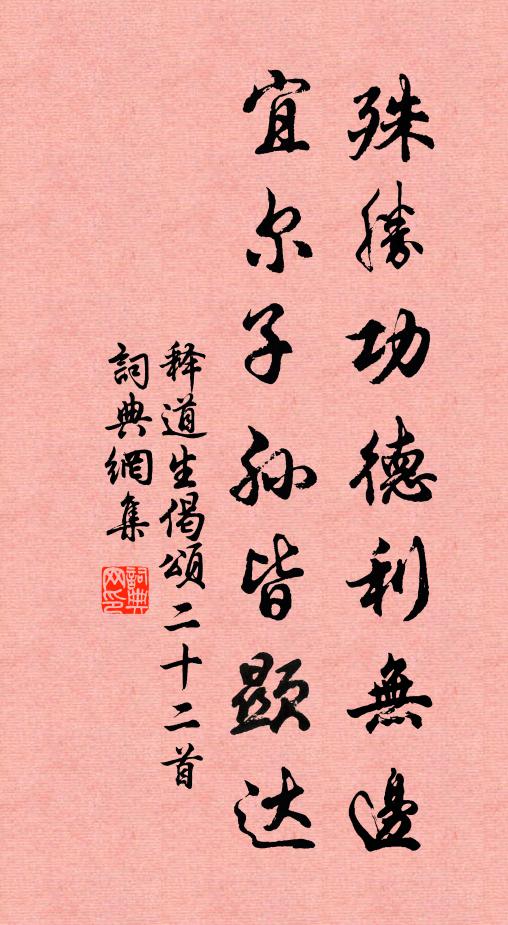 殊勝功德利無邊
宜尔子孙皆顕达
释道生偈頌二十二首
詞典網集
詞典网印